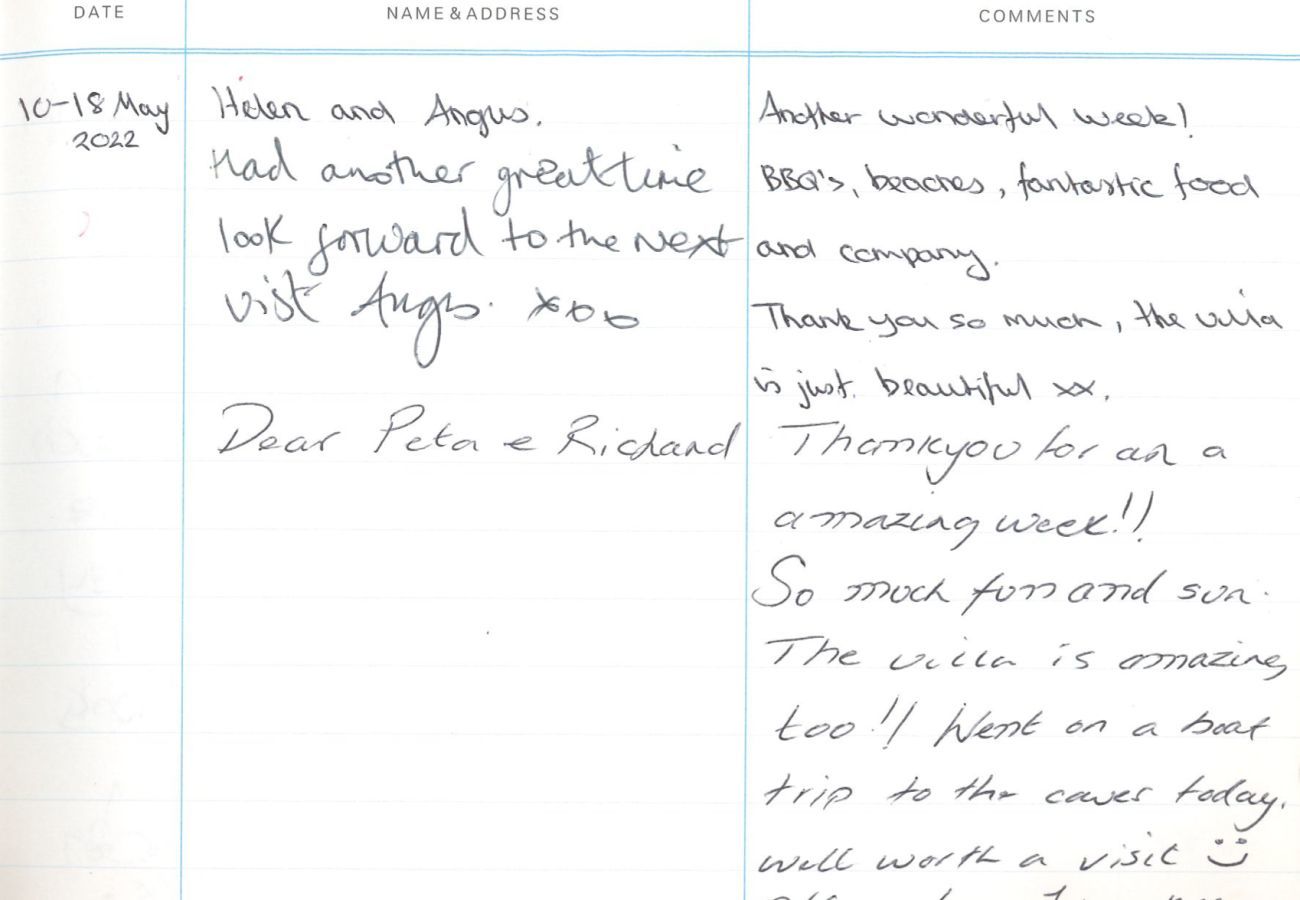 DATE
NAME & ADDRESS
COMMENTS
10-18 May
2022
Helen and Angus.
Had another great time
look forward to the next
vist Angs. xoo
Dear Peta e Richard
Another wonderful week!
BBQ's, beaches, fantastic food
and company.
Thank you so much, the villa
is just. beautiful xx.
Thankyou for an a
amazing week!!
So much fun and sun.
The villa is amazing
too!! Went on a boat
trip to the caves today.
well worth a visit